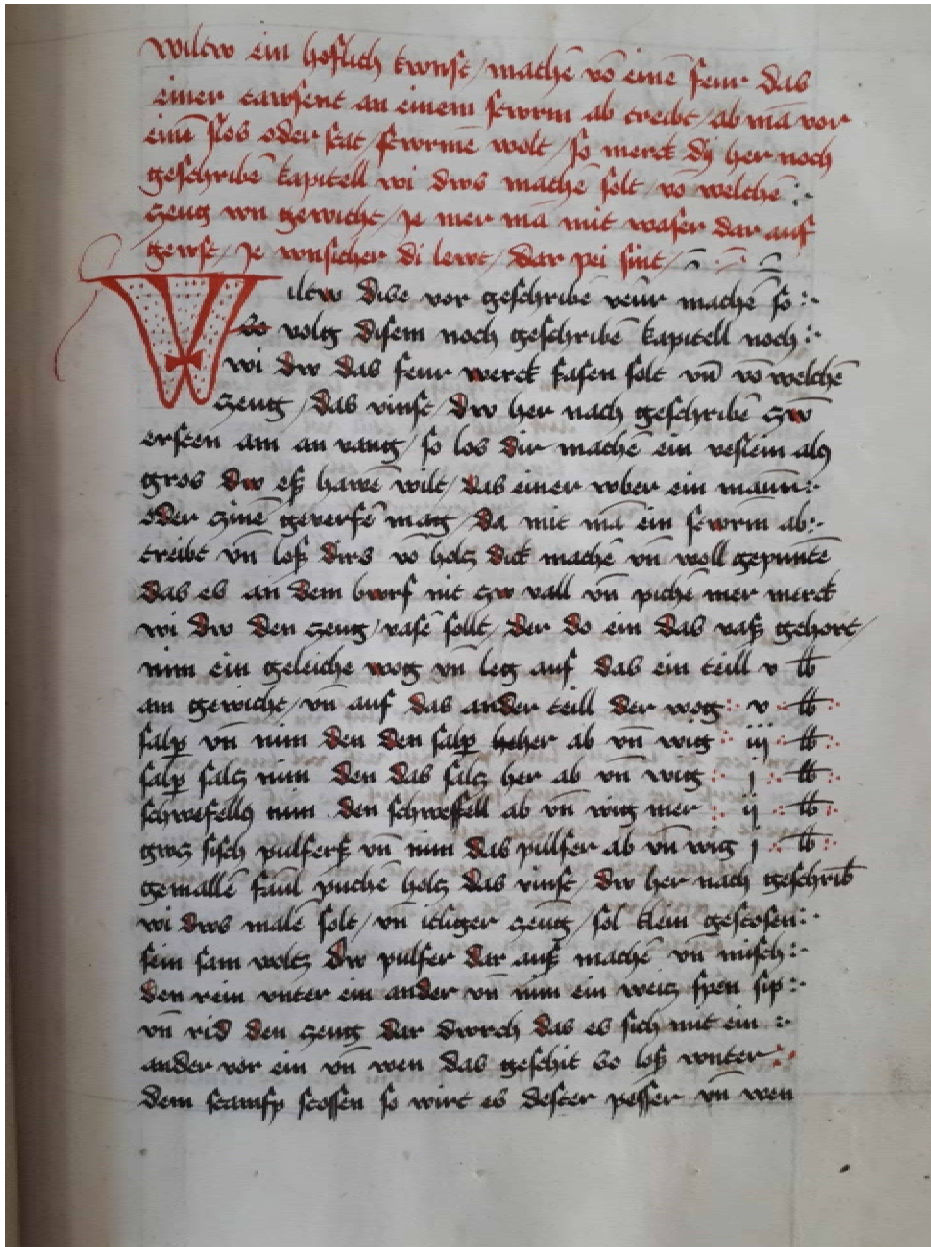 Wiltw ein hoflich kwnst / machē vō einē feur das
einer tawsent an einem stwrm ab treibt / ab mā vor
einē slos oder stat / stwrmē wolt / so merck dy her noch
geschribē kapitell wi dws machē solt / vō welchē
zeug vn gewicht / je mer mā mit waser dar auf
gewst / je wnsicher di lewt / dar pei sint /
Wiltw dise vor geschribē veur machē so
volg disem noch geschribē kapitell noch
wi dw das feur werck fasen solt vn̄ vō welchē
zeug / das vinst / dw her nach geschribē zw
ersten am an vang / so los dir machē ein veslein als
gros dw eß hawē wilt / das einer wber ein mawr
oder zinē geverfē mag / da mit mā ein stwrm ab
treibt vn̄ loß dirs vō holtz dick machē vn̄ woll gepuntē
das es an dem bwrf nit zw vall vn̄ pichē mer merck
wi dw den zeug / vasē sollt / der do ein das vaß gehort /
nim ein geleiche wog vn̄ leg auf das ein teill v lb
am gewicht / vn̄ auf das ander teill der wog v lb
salp vn̄ nim den den salp her ab vn̄ wig iij lb
salp saltz nim den das saltz her ab vn̄ wig j lb
schwefells nim den schweffell ab vn̄ wig mer ij lb
gwtz pulferß vn̄ nim das pulfer ab vn̄ wig j lb
gemallē faul puchē holtz das vinst / dw her nach geschrib̄
wi dws malē solt / vn̄ itliger zeug / sol klein gestosen
sein sam woltz dw pulfer dar auß machē vn̄ misch
den rein vnter ein ander vn̄ nim ein weitz spen sip
vn̄ rid den zeug dar dwrch das es sich mit ein
ander vor ein vn̄ wen das geschit so loß wnter
dem stampf stossen so wirt es dester pesser vn̄ wen